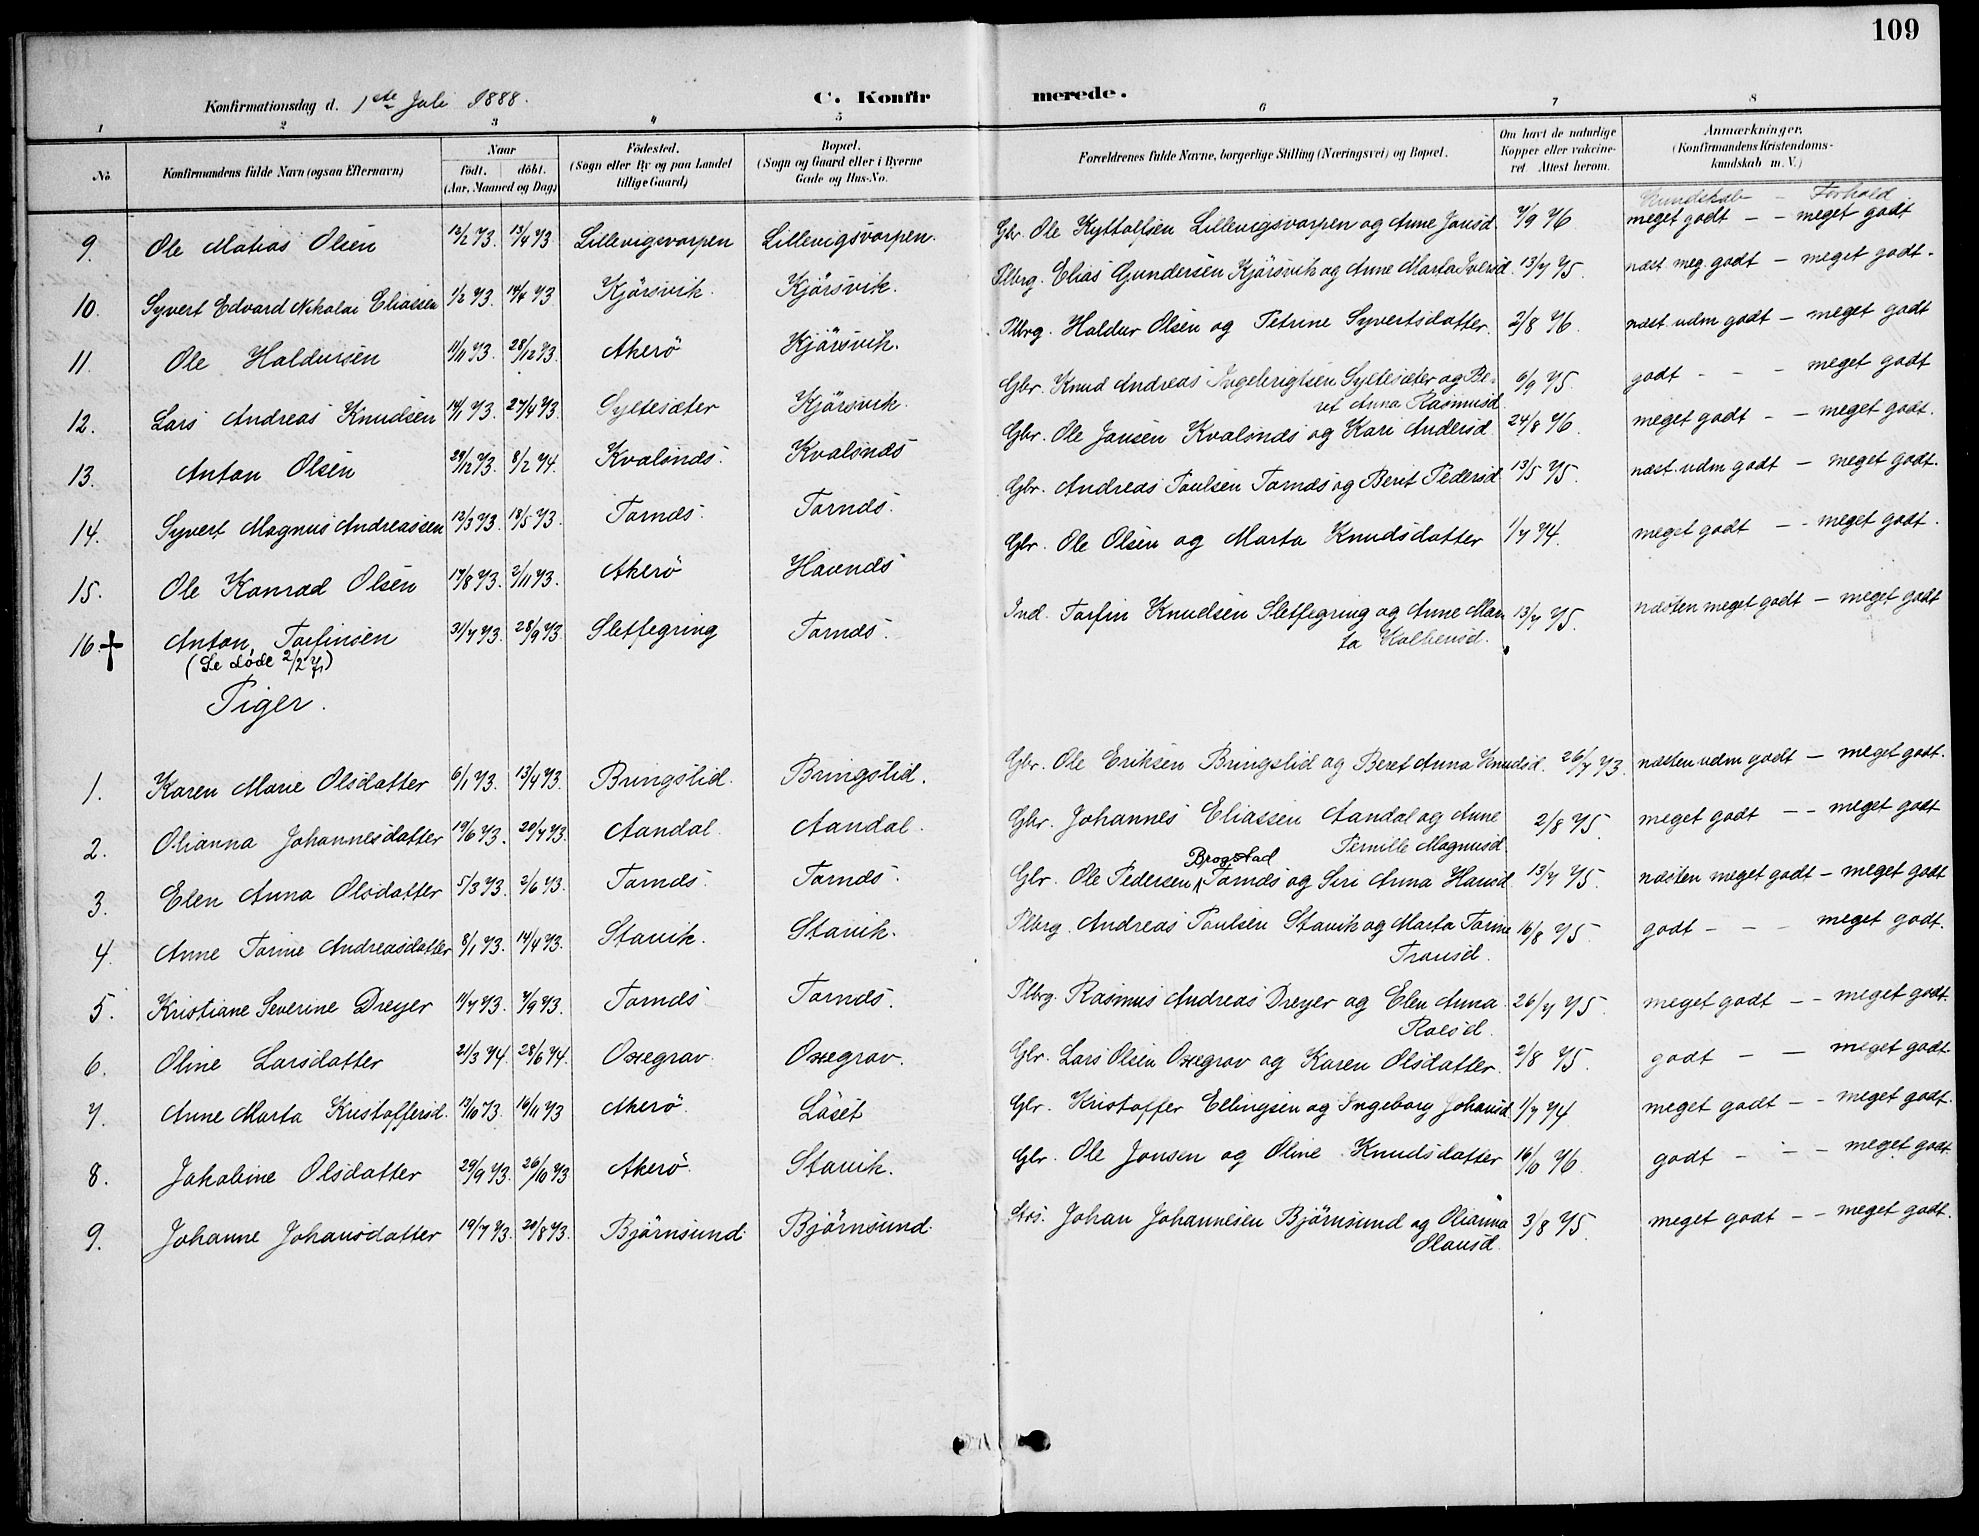 109
Konfirmationsdag d. 1ste Juli 1888. C. Konfirmerede.
1 2 3 4 5 6 7 8
No. Konfirmandens fulde Navn (ogsaa Efternavn) Naar født. døbt. (Aar, Maaned og Dag) Födested. (Sogn eller By og paa Landet tillige Gaard) Bopæl. (Sogn og Gaard eller i Byerne Gade og Hus-No. Forældrenes fulde Navne, borgerlige Stilling (Næringsvei) og Bopæl. Om havt de naturlige Kopper eller vakcineret Attest herom. Anmærkninger, (Konfirmandens Kristendomskundskab m. V.)
Kundskab - Forhold
9. Ole Matias Olsen 12/2 73. 13/4 73 Lillevigsvarpen Lillevigsvarpen. Gbr. Ole Kyttolfsen Lillevigsvarpen og Anne Jonsd. 7/9 76 meget godt - - meget godt
10. Syvert Edvard Nikolai Eliassen 1/2 73. 14/4 73 Kjörsvik. Kjörsvik. Plbrg. Elias Gundersen Kjörsvik og Anne Marta Iversd. 13/7 75. næst meg. godt - meget godt.
11. Ole Haldursen 11/11 73. 28/12 73. Akerö Kjörsvik. Plbrg. Haldur Olsen og Petrine Syvertsdatter. 2/8 76. næst. udm godt - meget godt
12. Lars Andreas Knudsen 14/1 73. 27/4 73. Syltesæter Kjörsvik. Gbr. Knud Andreas Ingebrigtsen Syltesæter og Be- 6/9 75. godt - - - meget godt
ret Anna Rasmusd.
13. Anton Olsen 29/12 73. 8/2 74. Kvalsnds. Kvalsnds Gbr. Ole Jansen Kvalsnds og Kari Andersd. 24/8 76. meget godt - - meget godt.
14. Syvert Magnus Andreassen 12/3 73. 18/5 73. Tornds. Tornds. Gbr. Andreas Paulsen Tornds og Berit Pedersd 13/5 75. næst. udm godt - meget godt.
15. Ole Konrad Olsen 17/8 73. 2/11 73. Akerö Havnds Gbr. Ole Olsen og Marta Knudsdatter 1/7 74. meget godt - - meget godt.
16 † Anton Torfinsen 31/7 73. 28/9 73. Sletfegring Tornds. Ind. Torfin Knudsen Sletfegring og Anne Mar- 13/7 75. næsten meget godt - meget godt
(Se döde 2/2 71) ta
Piger.
1. Karen Marie Olsdatter 6/1 73. 13/4 73. Bringslid. Bringslid. Gbr. Ole Eriksen Bringslid og Beret Anna Knudsd. 26/7 73. næsten udm godt - meget godt.
2. Olianna Johannesdatter 19/6 73. 20/7 73. Aandal. Aandal. Gbr. Johannes Eliassen Aandal og Anne 2/8 75. meget godt - - meget godt
Pernille Magnusd.
3. Elen Anna Olsdatter 5/3 73. 2/6 73. Tornds. Tornds. Gbr. Ole Pedersen Brogstad Tornds og Siri Anna Hansd. 13/7 75. næsten meget godt - meget godt
4. Anne Torine Andreasdatter 8/1 73. 14/4 73. Stavik. Stavik. Plbrg. Andreas Paulsen Stavik og Marta Torine 16/8 75. godt - - - meget godt.
Tronsd.
5. Kristiane Severine Dreyer 11/7 73. 7/9 73. Tornds Tornds. Plbrg. Rasmus Andreas Dreyer og Elen Anna 26/7 75. meget godt - - meget godt.
Rolsd.
6. Oline Larsdatter 21/3 74. 28/6 74. Oxegrav. Oxegrav. Gbr. Lars Olsen Oxegrav og Karen Olsdatter. 2/8 75. godt - - meget godt.
7. Anne Marta Kristoffersd. 13/10 73. 16/11 73 Akerö. Läset Gbr. Kristoffer Ellingsen og Ingeborg Johansd. 1/7 74 meget godt - - meget godt.
8. Jakobine Olsdatter 29/9 73. 26/10 73 Akerö. Stavik. Gbr. Ole Jonsen og Oline Knudsdatter 16/10 76. godt - - - meget godt.
9. Johanne Johansdatter 19/7 73. 20/8 73. Björnsund. Björnsund. Stbs. Johan Johannesen Björnsund og Olianna 3/8 75. meget godt - - meget godt.
Olausd.